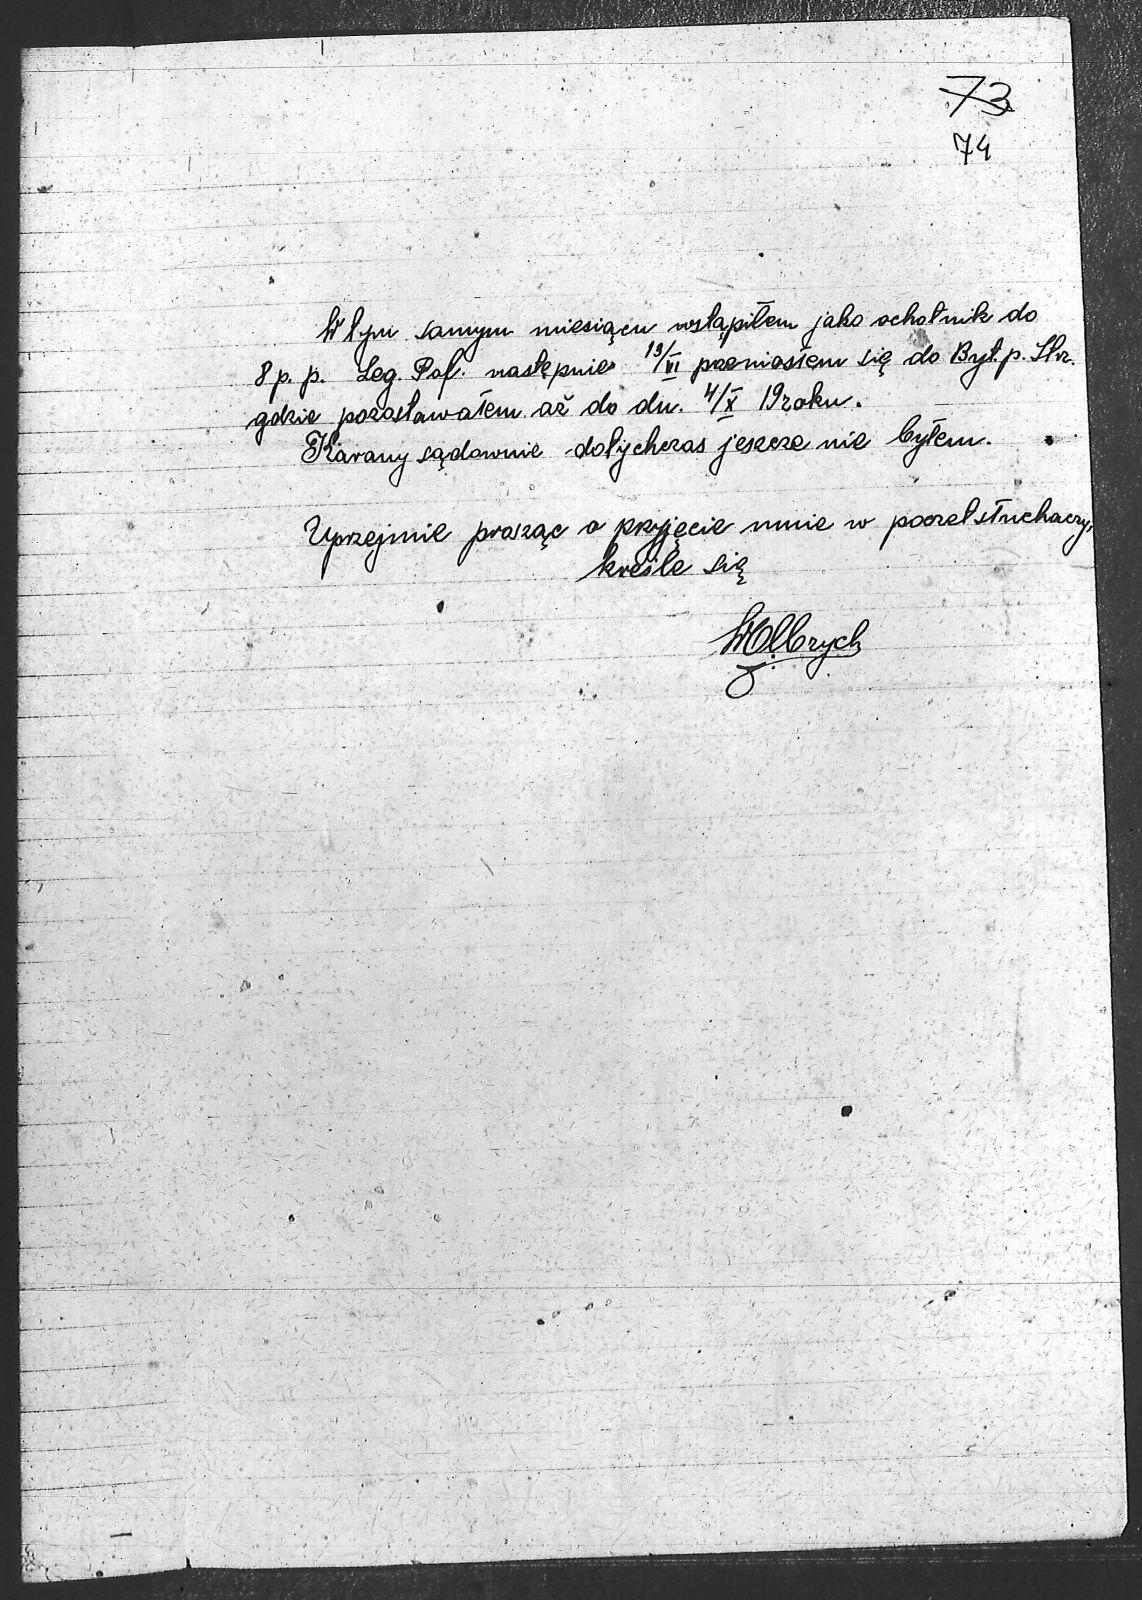 73
74
W tym samym miesiącu wstąpiłem jako ochotnik do
8 p. p. Leg. Pol. następnie 13/VI przeniosłem się do Byt. p. Strz.
gdzie pozostawałem aż do dn. 4/X 19 roku.
Karany sądownie dotychczas jeszcze nie byłem.
Uprzejmie prosząc o przyjęcie mnie w poczet słuchaczy,
kreśle się
WOlbrych